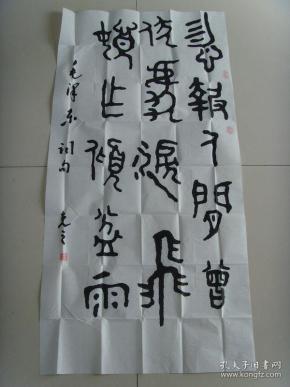 忽報人間曾
伏虎淚飛
頓作傾盆雨
毛澤东詞句
孔夫子旧书网